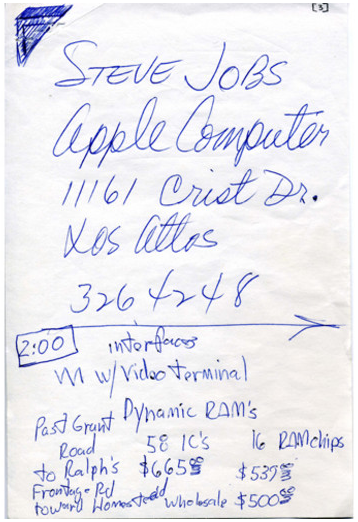 [3]
STEVE JOBS
Apple Computer
11161 Crist Dr.
Los Altos
326 4248
2:00 interfaces
w/Video terminal
Dynamic RAM's
Past Grant Road
58 IC's 16 RAM chips
to Ralph's $665 $539
Frontage Rd
toward Homestead wholesale $500